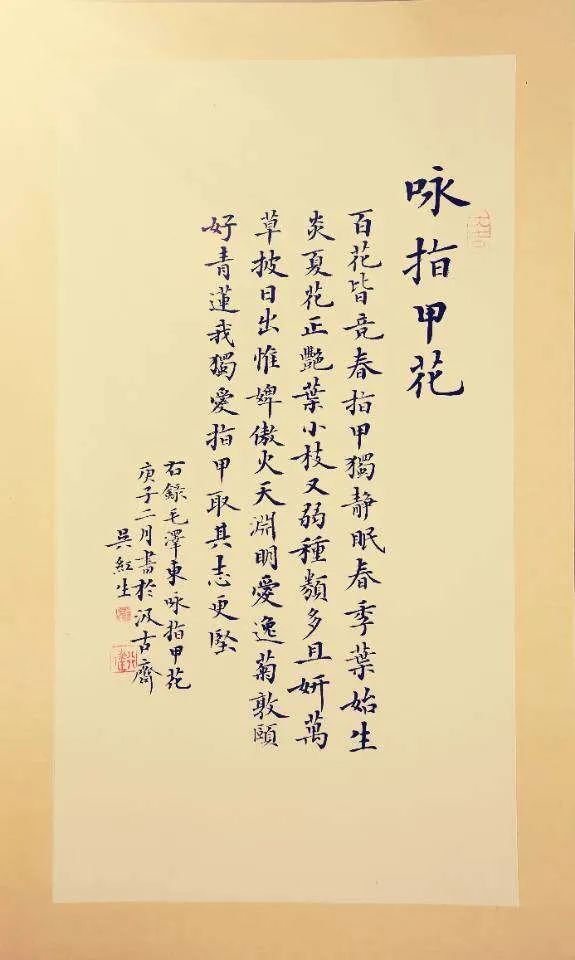 咏指甲花
百花皆竞春指甲獨静眠春季葉始生
炎夏花正艷葉小枝又弱種類多且妍萬
草披日出惟婢傲火天淵明愛逸菊敦頤
好青蓮我獨愛指甲取其志更堅
右錄毛澤東咏指甲花
庚子二月書於汲古齋
吴紅生